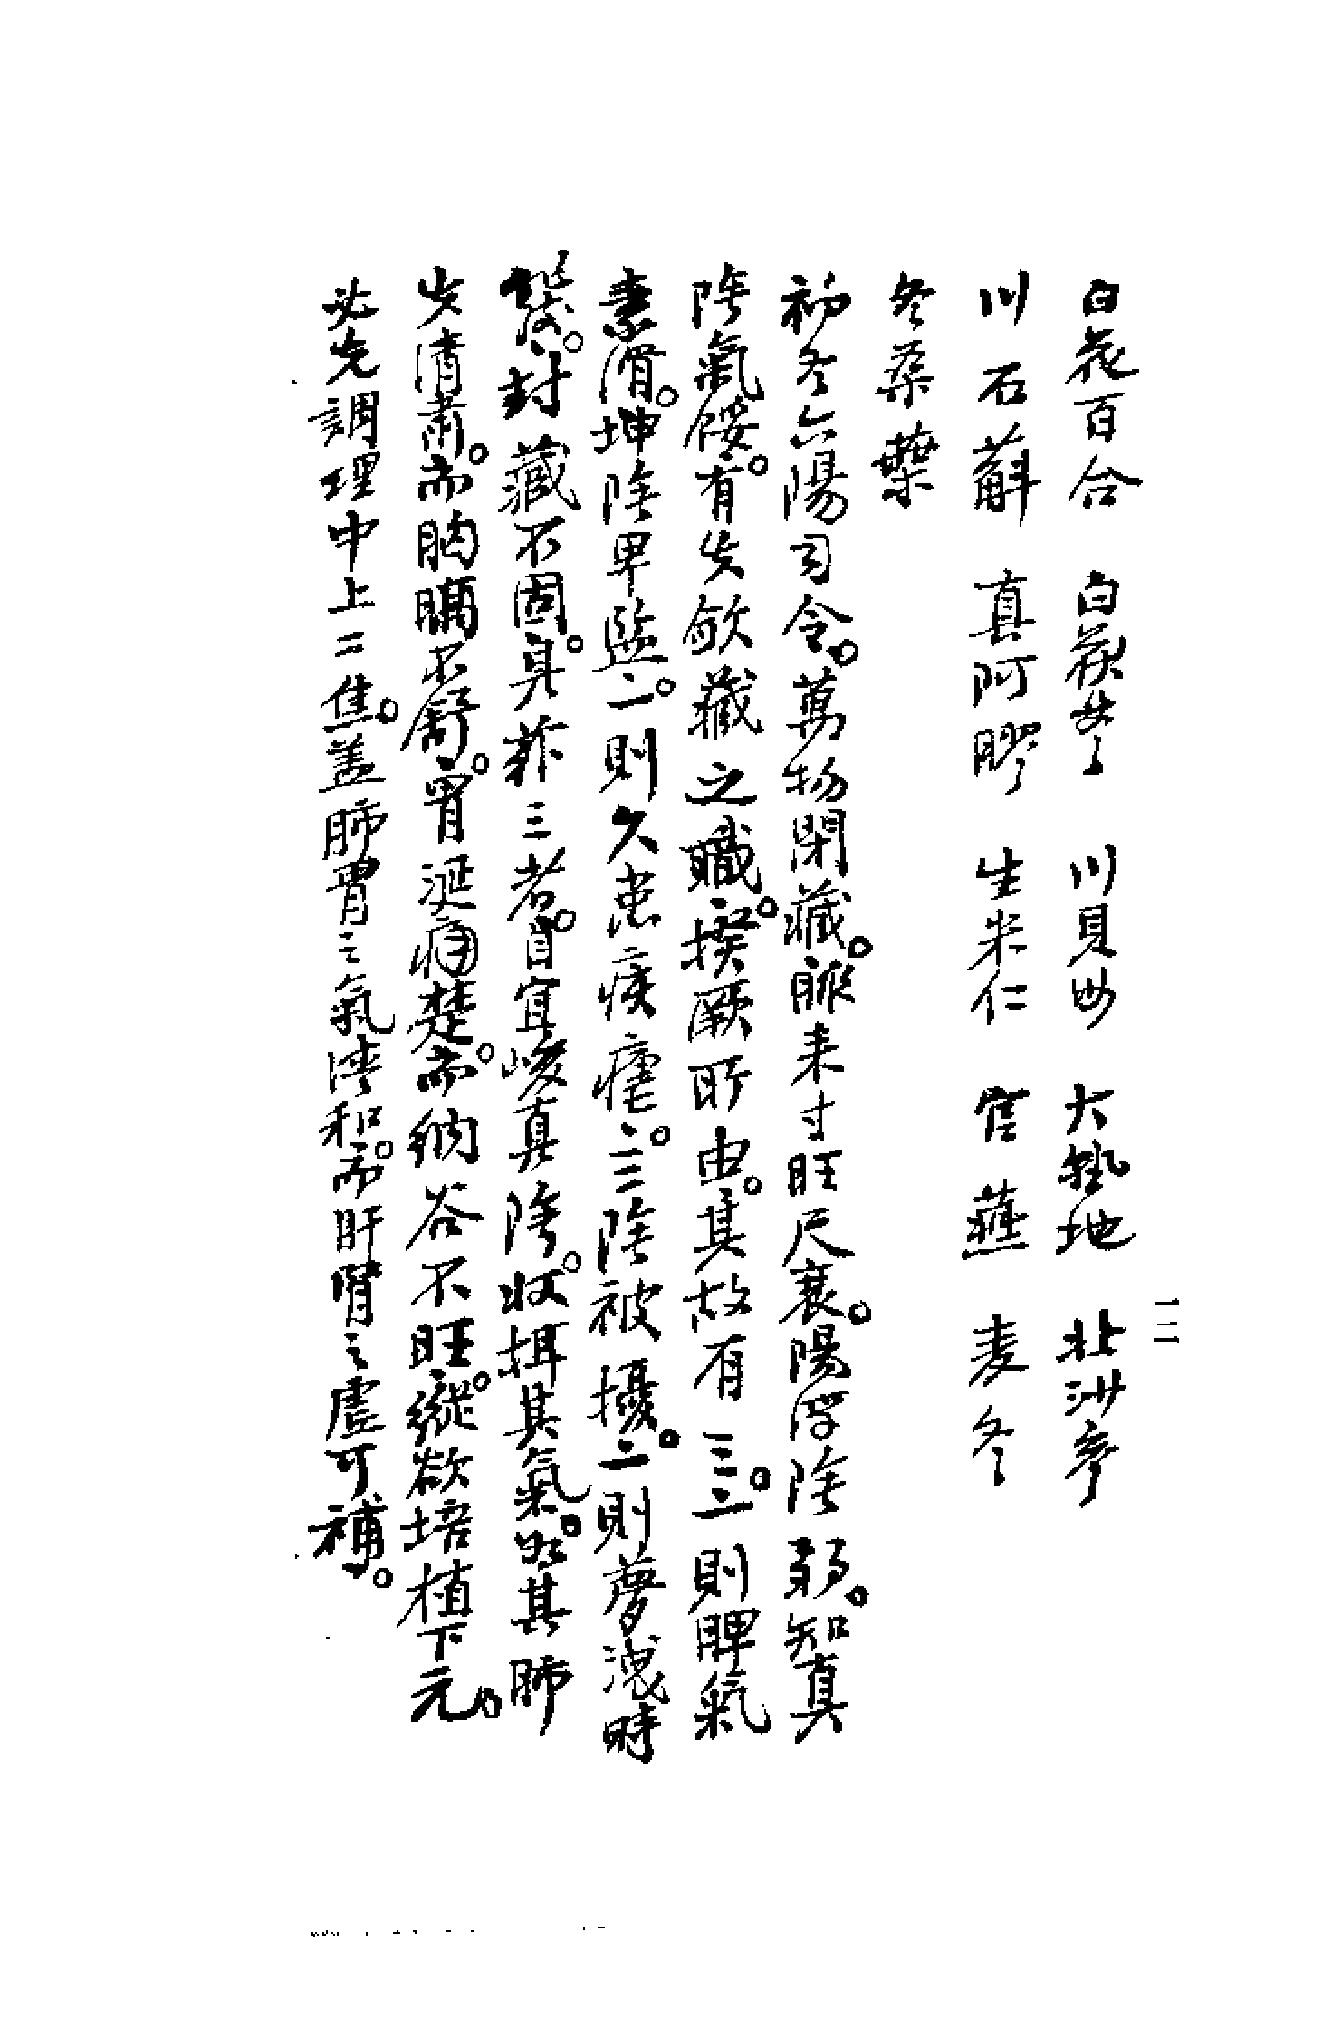 白花百合　白茯苓　川貝母　大熟地　北沙參
川石斛　真阿膠　生米仁　官燕　麦冬
冬桑葉
初冬六陽司令。萬物閉藏。脈来寸旺尺衰。陽浮陰弱。知真
陰氣餒。有失歛藏之職。揆厥所由。其故有三。一則脾氣
素滑。坤陰卑監。一則久患痎瘧。三陰被擾。一則夢洩時
發。封藏不固。具茲三者。自宜峻真陰。收攝其氣。然其肺
失清肅。而胸膈不舒。胃涎痛楚。而納谷不旺。縱欲培植下元。
必先調理中上二焦。盖肺胃之氣清和。而肝腎之虛可補。
一二